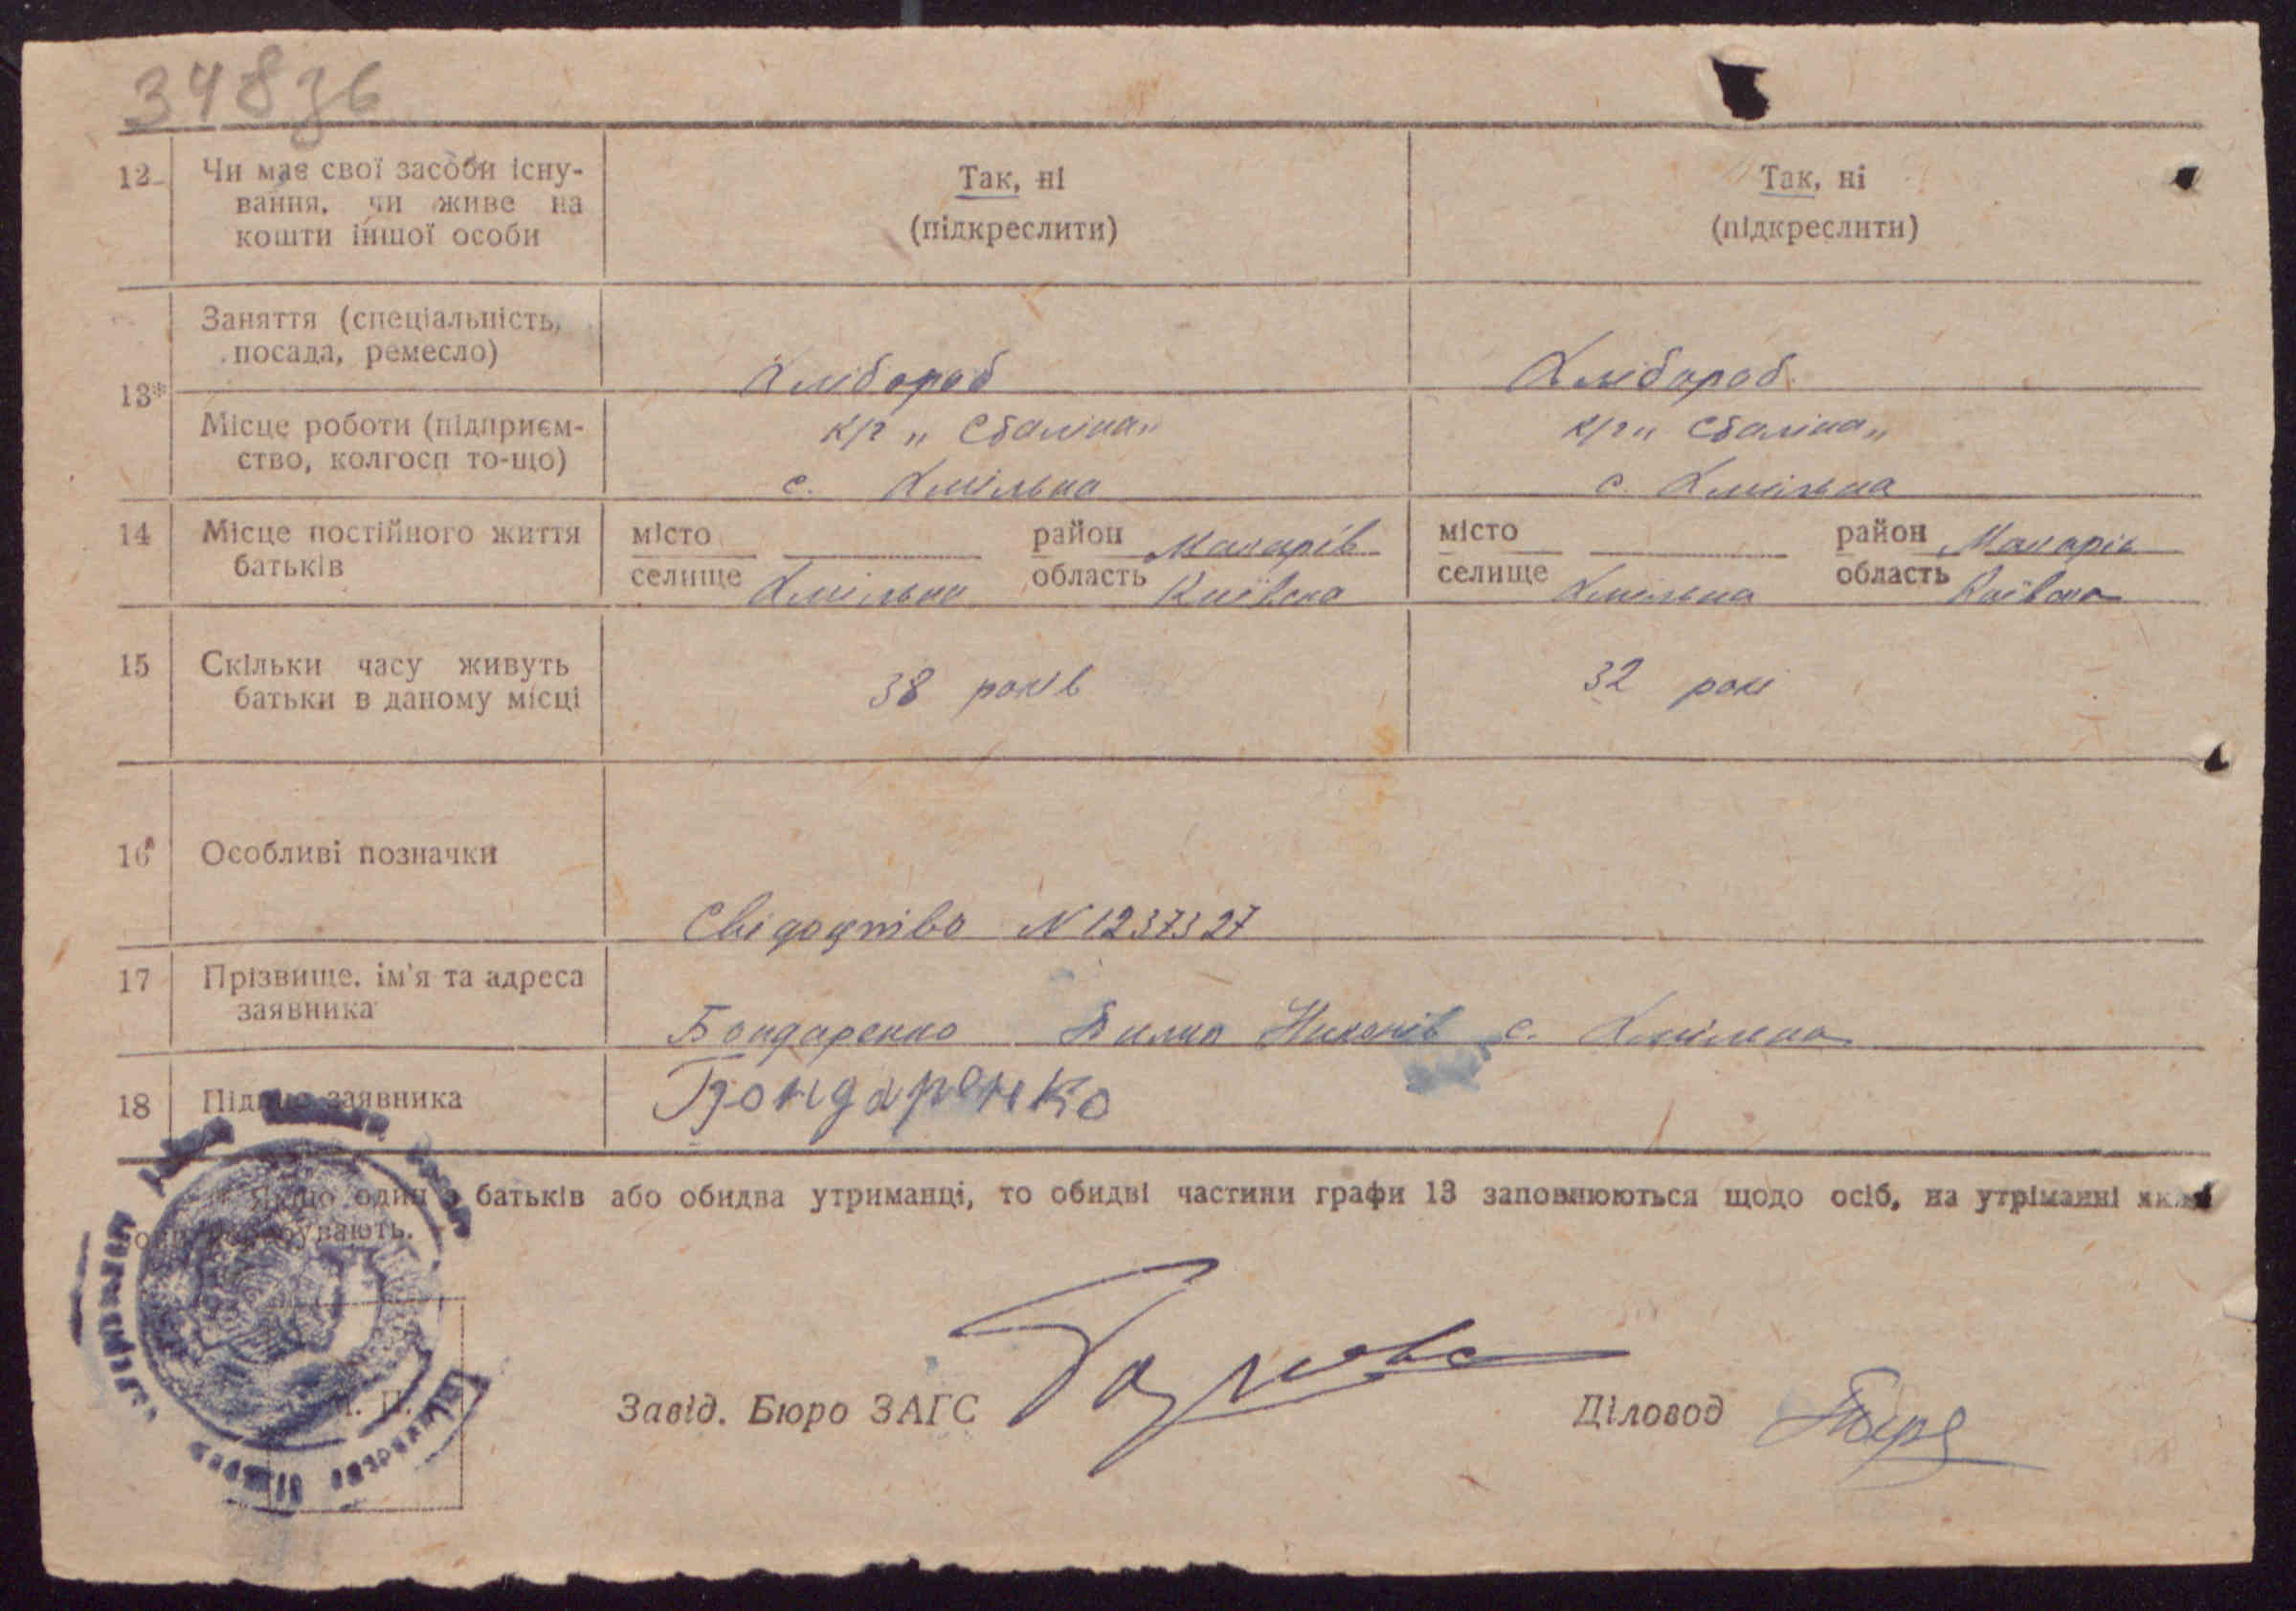 34836
12 Чи має свої засоби існу-
вання, чи живе на
кошти іншої особи
Так, ні
(підкреслити)
Так, ні
(підкреслити)
13* Заняття (спеціальність,
посада, ремесло)
Хлібороб
Хлібороб
Місце роботи (підприєм-
ство, колгосп то-що)
к/г „Сталіна"
с. Хмільна
к/г „Сталіна"
с. Хмільна
14 Місце постійного життя
батьків
місто
селище Хмільна
район Макарів
область Київська
місто
селище Хмільна
район Макарів
область Київська
15 Скільки часу живуть
батьки в даному місці
38 років
32 рокі
16 Особливі позначки
Свідоцтво N 1237327
17 Прізвище, ім'я та адреса
заявника
Бондаренко с. Хмільна
18 Підпис заявника
Бондаренко
* Якщо один з батьків або обидва утриманці, то обидві частини графи 13 заповнюються щодо осіб, на утріманні яких
вони перебувають.
М. П.
Завід. Бюро ЗАГС
Діловод